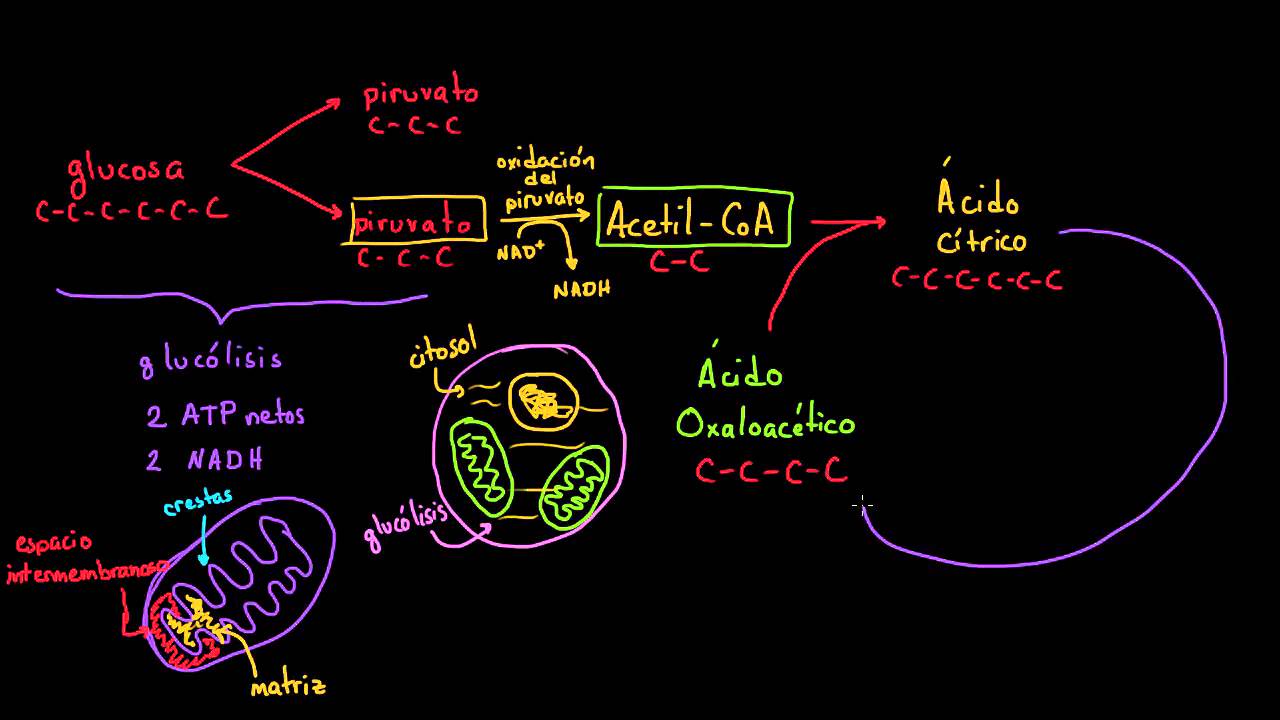 piruvato
C-C-C
glucosa
C-C-C-C-C-C
oxidación
del
piruvato
piruvato
C-C-C
NAD+
NADH
Acetil-CoA
C-C
Ácido
cítrico
C-C-C-C-C-C
glucólisis
2 ATP netos
2 NADH
citosol
glucólisis
Ácido
Oxaloacético
C-C-C-C
crestas
espacio
intermembranoso
matriz